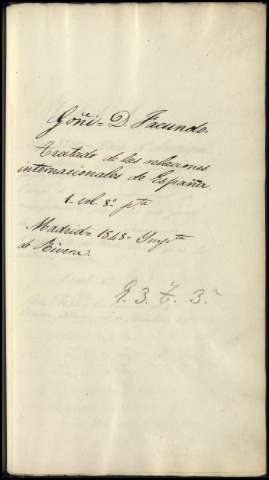 Goñi - D. Facundo.
Tratado de las relaciones
internacionales de España.
1. vol. 8.º pta
Madrid - 1848 - Impta
de Rivera.
3. 3.